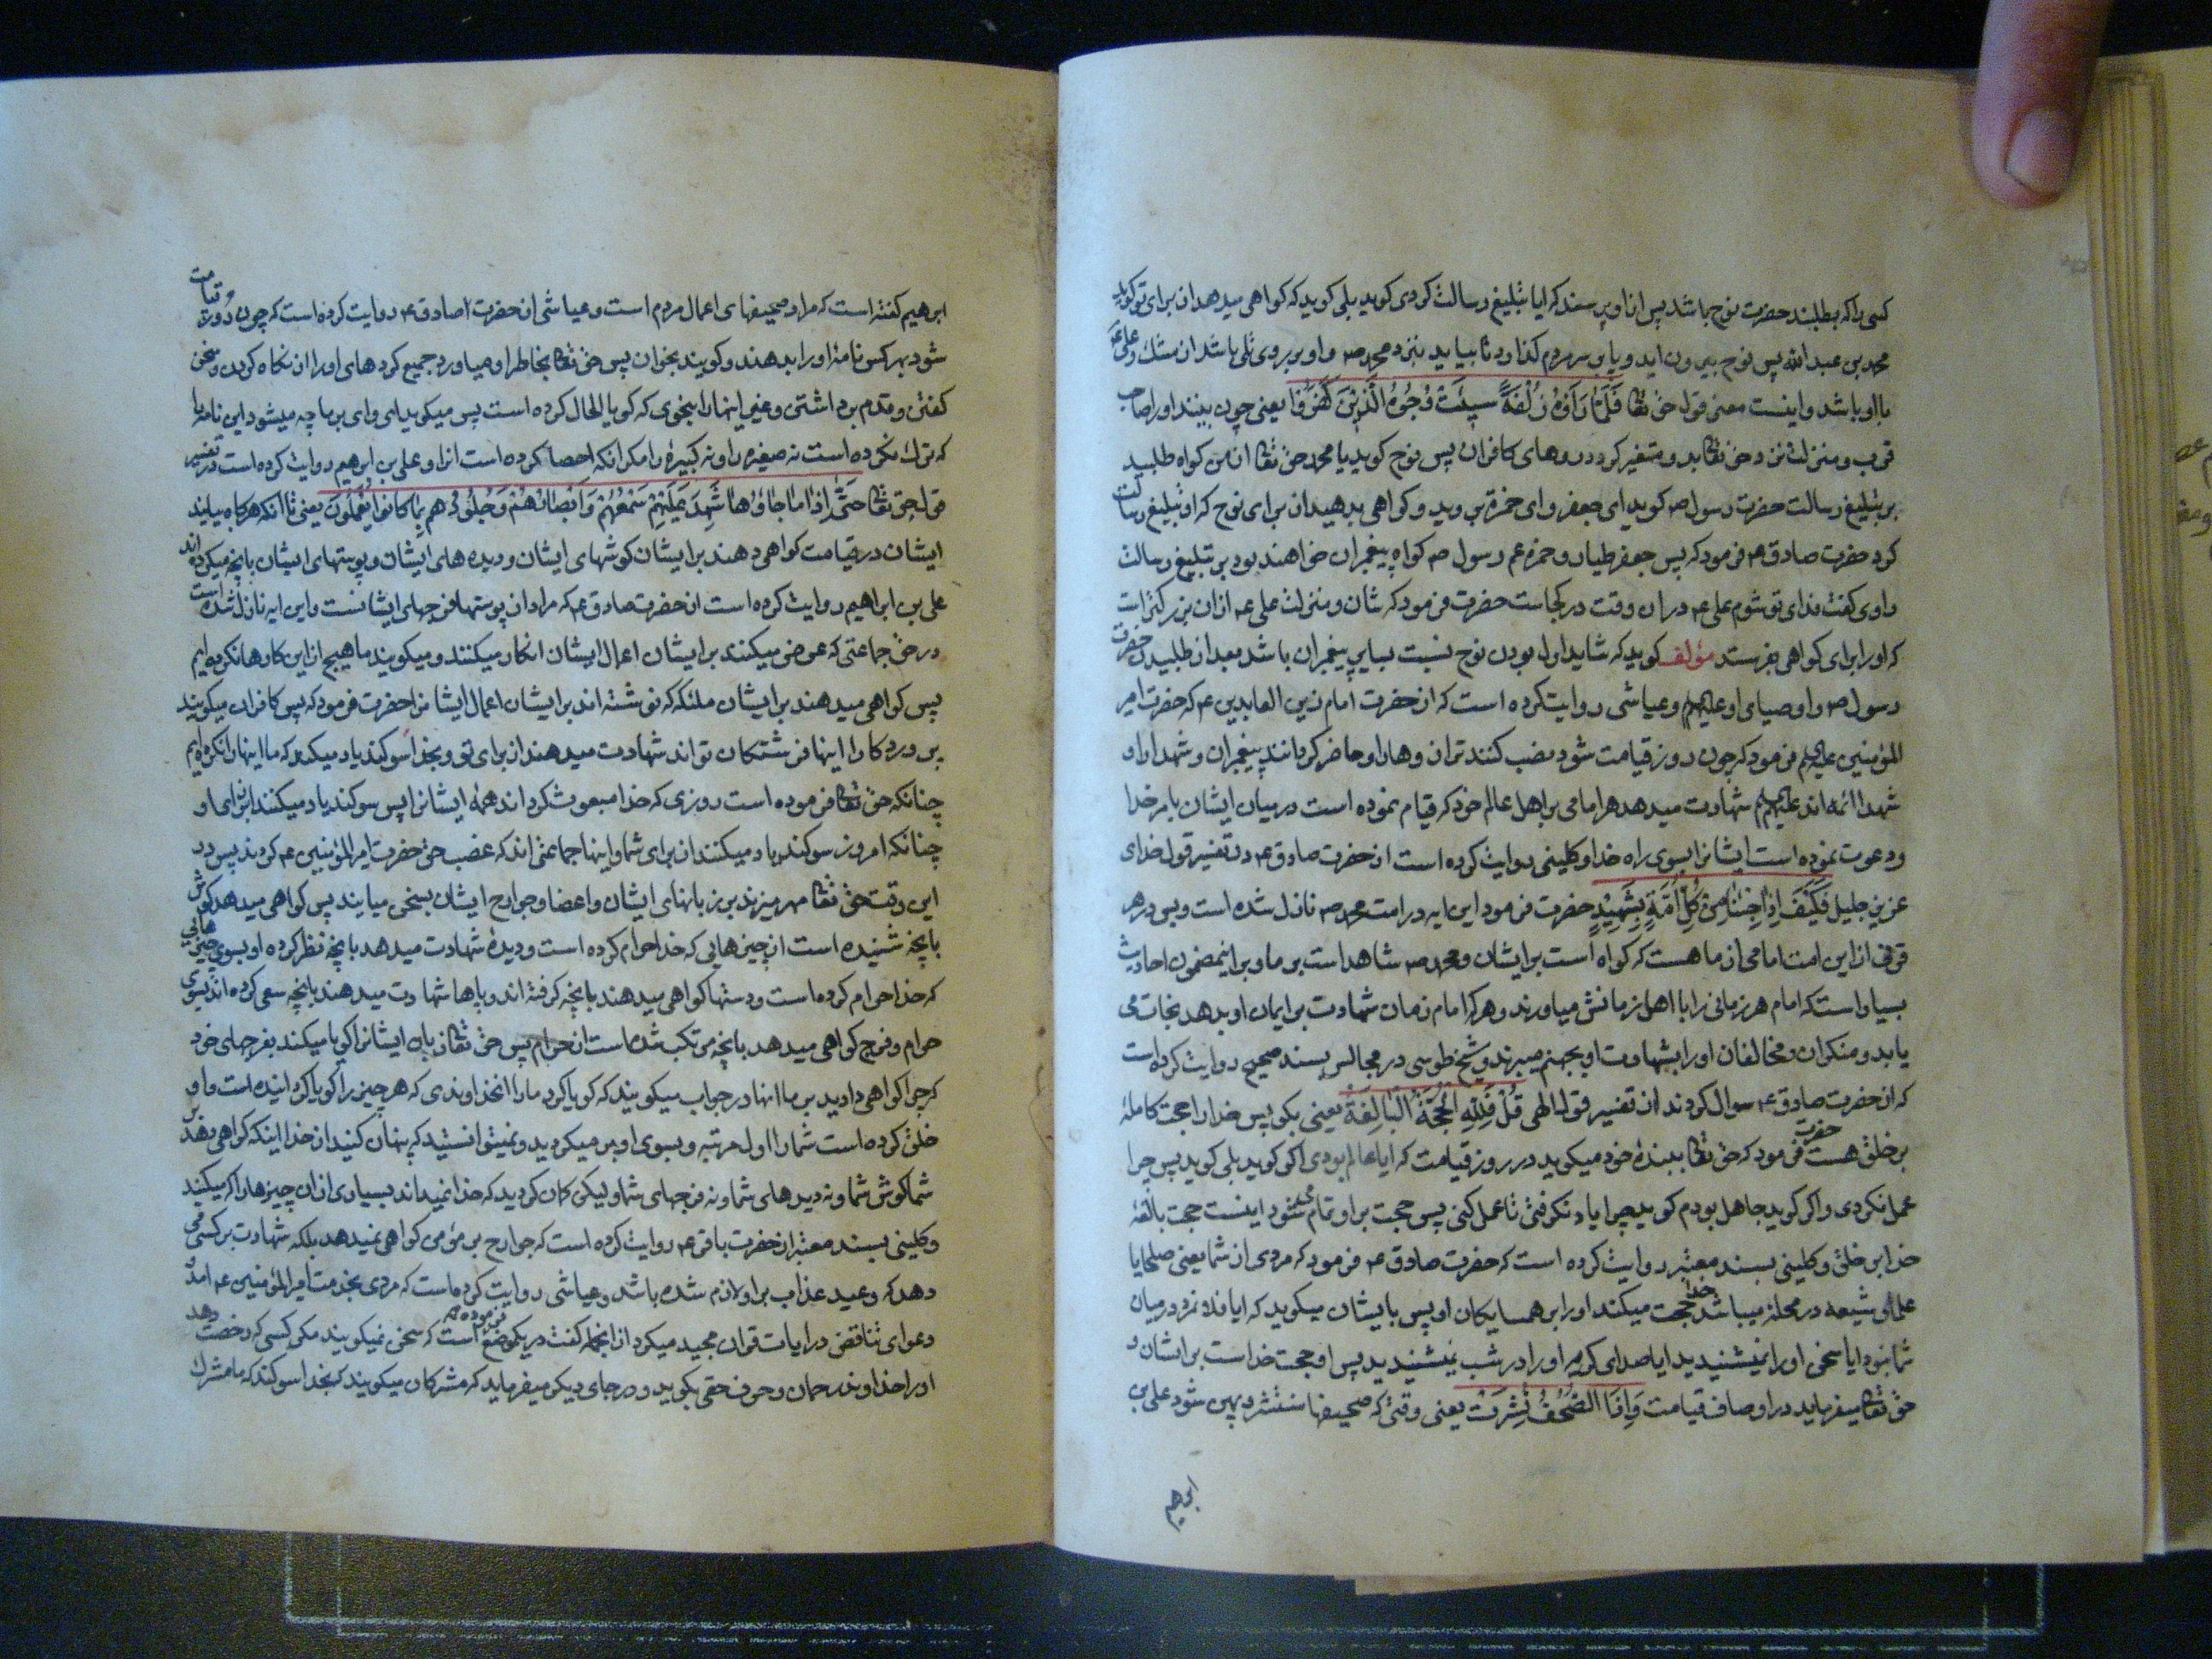 کسی را که بطلبند حضرت نوح باشد پس از او پرسند که ایا تبلیغ رسالت کردی کوید بلی کوید که کواهی میدهد از برای تو کوید
محمد بن عبد الله پس نوح بیرون اید و پا بر سر مردم کذارد تا بیاید بنزد محمد ص و او بر روی تلی باشد از مشک و علی ع
با او باشد و اینست معنی قول حق تعا فَلَمّا رَاَوْهُ زُلْفَةً سیئَتْ وُجُوهُ الَّذینَ کَفَرُوا یعنی چون بینند او را صاحب
قرب و منزلت نزد حق تعا بد و متغیر کردد روهای کافران پس نوح کوید یا محمد حق تعا از من کواه طلبید
بر تبلیغ رسالت حضرت رسول ص کوید ای جعفر و ای حمزه بروید و کواهی بدهید از برای نوح که او تبلیغ رسالت
کرد حضرت صادق ع فرمود که پس جعفر طیار و حمزه عم رسول ص کواه پیغمبران خواهند بود بر تبلیغ رسالت
راوی کفت فدای تو شوم علی ع در ان وقت در کجاست حضرت فرمود که شان و منزلت علی ع ازان بزرکتر است
که او را برای کواهی بفرستد مؤلف کوید که شاید اول بودن نوح نسبت بسایر پیغمبران باشد بعد از طلبیدن حضرت
رسول ص و اوصیای او علیهم و عیاشی روایت کرده است که از حضرت امام زین العابدین ع که حضرت امیر
المؤمنین علیه فرمود که چون روز قیامت شود نصب کنند ترازوها را و حاضر کردانند پیغمبران و شهدا را و
شهدا ائمه اند علیهم شهادت میدهد هر امامی بر اهل عالم خود که قیام نموده است در میان ایشان بامر خدا
و دعوت نموده است ایشانرا بسوی راه خدا و کلینی روایت کرده است از حضرت صادق ع در تفسیر قول خدای
عزیز جلیل فَکَیْفَ اِذا جِئْنا مِنْ کُلِّ اُمَّةٍ بِشَهیدٍ حضرت فرمود این ایه در امت محمد ص نازل شده است و بس در هر
قرنی از این امت امامی از ما هست که کواه است بر ایشان و محمد ص شاهد است بر ما و بر اینمضمون احادیث
بسیار است که امام هر زمانی را با اهل زمانش میاورند و هر که امام زمان شهادت بر ایمان او بدهد نجات می
یابد و منکران و مخالفان او را بشهادت او بجهنم میبرند و شیخ طوسی در مجالس بسند صحیح روایت کرده است
که از حضرت صادق ع سوال کردند از تفسیر قول الهی قُلْ فَلِلّهِ الْحُجَّةُ الْبالِغَةُ یعنی بکو پس خدا را حجت کاملهٔ
بر خلق هست حضرت فرمود که حق تعا ببندهٔ خود میکوید در روز قیامت که ایا عالم بودی اکر کوید بلی کوید پس چرا
عمل نکردی و اکر کوید جاهل بودم کوید چرا یاد نکرفتی تا عمل کنی پس حجت بر او تمام می شود اینست حجت بالغهٔ
خدا بر خلق و کلینی بسند معتبر روایت کرده است که حضرت صادق ع فرمود که مردی از شما یعنی صلحا یا
علمای شیعه در محلهٔ میباشد خدا حجت میکند او را بر همسایکان او پس بایشان میکوید که ایا فلان مرد در میان
شما نبود ایا سخن او را نمیشنیدید ایا صدای کریهٔ او را در شب نمیشنیدید پس او حجت خداست بر ایشان و
حق تعا میفرماید در اوصاف قیامت وَاِذَا الصُّحُفُ نُشِرَتْ یعنی وقتی که صحیفها منتشر و پهن شود علی بن
ابرهیم
ابرهیم کفته است که مراد صحیفهای اعمال مردم است و عیاشی از حضرت صادق ع روایت کرده است که چون روز قیامت
شود بهر کس نامهٔ او را بدهند و کویند بخوان پس حق تعا بخاطر او میاورد جمیع کردهای او را از نکاه کردن و سخن
کفتن و قدم برداشتن و غیر اینها را بنحوی که کویا الحال کرده است پس میکوید ای وای بر ما چه میشود این نامه را
که ترک نکرده است نه صغیره را و نه کبیرهٔ را مکر انکه احصا کرده است انرا و علی بن ابرهیم روایت کرده است در تفسیر
قول حق تعا حَتّی اِذا ما جاؤُها شَهِدَ عَلَیْهِمْ سَمْعُهُمْ وَاَبْصارُهُمْ وَجُلُودُهُم بِما کانُوا یَعْمَلُونَ یعنی تا انکه هر کاه بیایند
ایشان در قیامت کواهی دهند بر ایشان کوشهای ایشان و دیدههای ایشان و پوستهای ایشان بانچه میکرده اند
علی بن ابراهیم روایت کرده است از حضرت صادق ع که مراد از پوستها فرجهای ایشانست و این ایه نازل شده است
در حق جماعتی که عرض میکنند بر ایشان اعمال ایشان انکار میکنند و میکویند ما هیچ از این کارها نکرده ایم
پس کواهی میدهند بر ایشان ملئکه که نوشته اند بر ایشان اعمال ایشانرا حضرت فرمود که پس کافران میکویند
پروردکارا اینها فرشتکان تو اند شهادت میدهند از برای تو و بخدا سوکند یاد میکنند که ما اینها را نکرده ایم
چنانکه حق تعا فرموده است روزی که خدا مبعوث کرداند همهٔ ایشانرا پس سوکند یاد میکنند از برای او
چنانکه امروز سوکند یاد میکنند از برای شما و اینها جماعتی اند که غصب حق حضرت امیر المؤمنین ع کردند پس در
این وقت حق تعا مهر میزند بر زبانهای ایشان و اعضا و جوارح ایشان بسخن میایند پس کواهی میدهد کوش
بانچه شنیده است از چیزهایی که خدا حرام کرده است و دیده شهادت میدهد بانچه نظر کرده او بسوی چیز هایی
که خدا حرام کرده است و دستها کواهی میدهند بانچه کرفته اند و پاها شهادت میدهند بانچه سعی کرده اند بسوی
حرام و فرج کواهی میدهد بانچه مرتکب شده است از حرام پس حق تعا زبان ایشانرا کویا میکند بفرجهای خود
که چرا کواهی دادید بر ما انها در جواب میکویند که کویا کرد ما را انخداوندی که هر چیز را کویا کردانیده است و او
خلق کرده است شما را اول مرتبه و بسوی او بر میکردید و نمیتوانستید که پنهان کنید از خدا اینکه کواهی دهد بر
شما کوش شما و نه دیدهای شما و نه فرجهای شما و لیکن کمان کردید که خدا نمیداند بسیاری ازان چیزها را که میکنید
و کلینی بسند معتبر از حضرت باقر ع روایت کرده است که جوارح بر مؤمن کواهی نمیدهد بلکه شهادت بر کسی می
دهد که وعید عذاب بر او لازم شده باشد و عیاشی روایت کرده است که مردی بخدمت امیر المؤمنین ع امد و
دعوای تناقض در ایات قران مجید میکرد از انجمله کفت در یکموضع فرموده است که سخن نمیکویند مکر کسی که رخصت دهد
او را خداوند رحمان و حرف حقی بکوید و در جای دیکر میفرماید که مشرکان میکویند که بخدا سوکند که ما مشرک